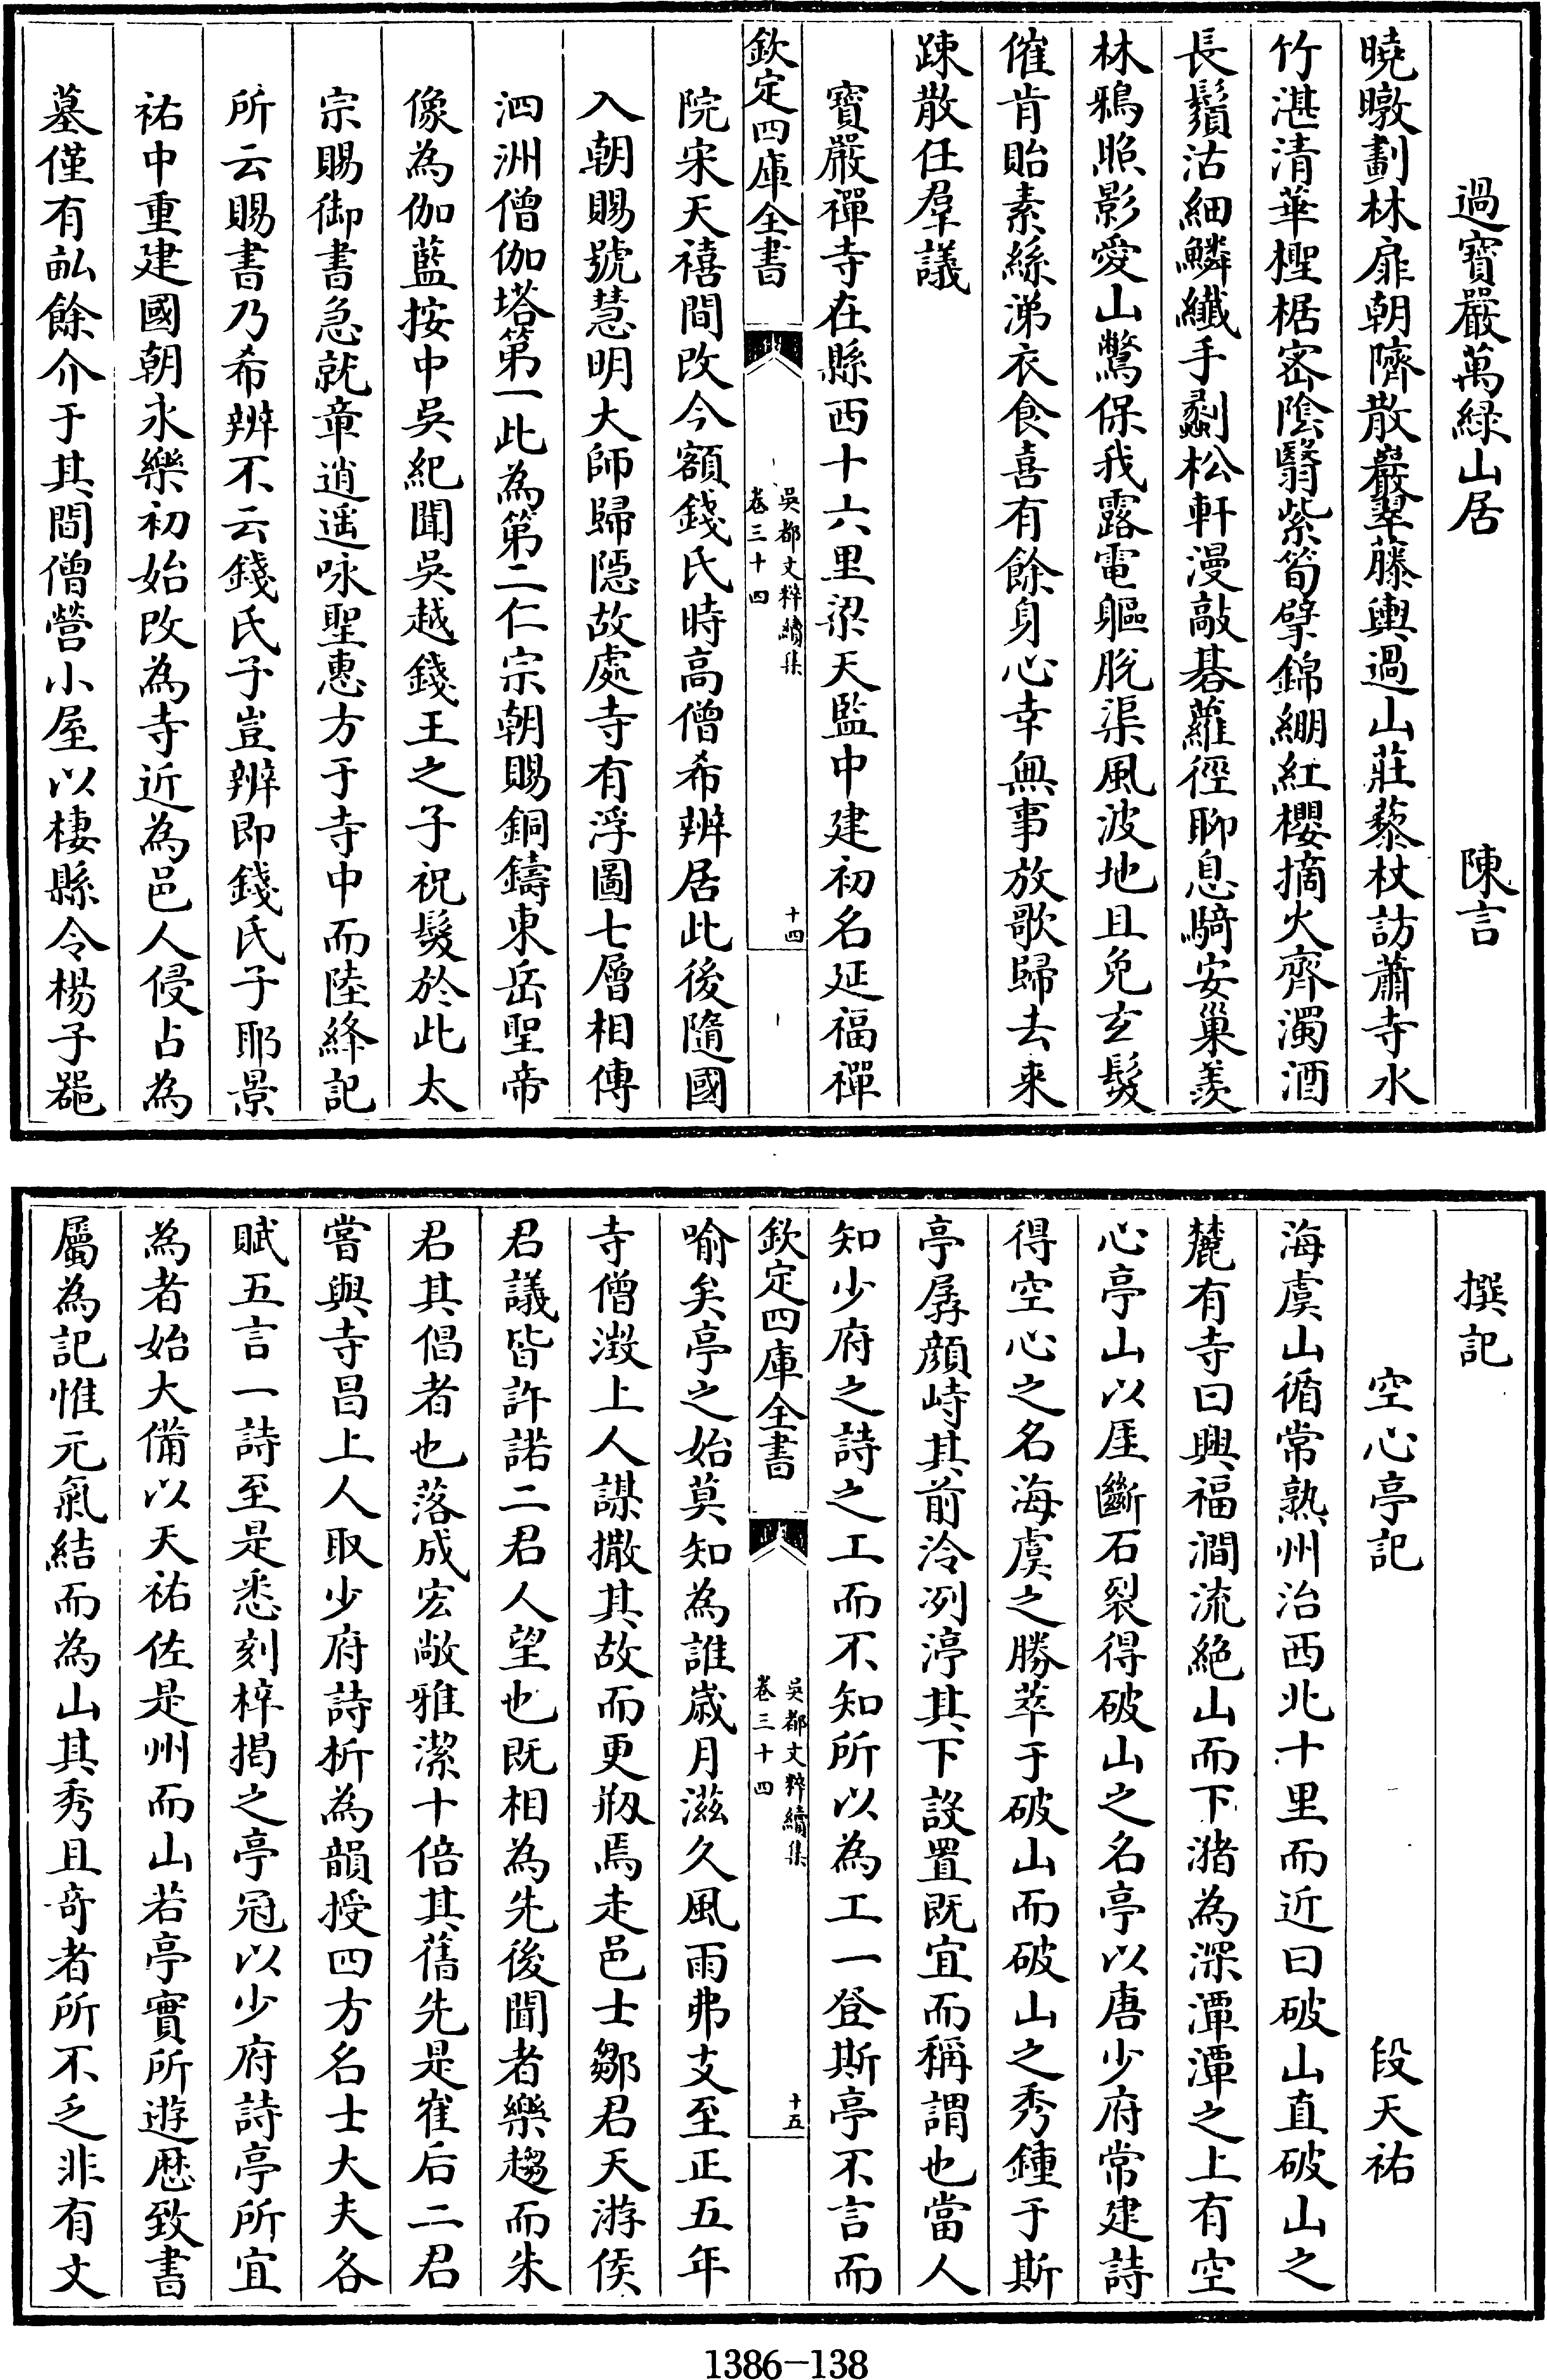 過寶嚴萬緑山居　陳言
曉暾劃林扉朝隮散巖翠藤輿過山莊藜杖訪蕭寺水
竹湛清華檉椐宻隂翳紫筍孹錦綳紅櫻摘火齊濁酒
長鬚沽細鱗纖手剶松軒漫敲碁蘿徑聊息騎安巢羨
林鴉照影愛山鷩保我露電軀脱渠風波地且免玄髮
催肯貽素絲涕衣食喜有餘身心幸無事放歌歸去来
踈散任羣議
寶嚴禪寺在縣西十六里梁天監中建初名延福禪
欽定四庫全書
吳都文粹續集
卷三十四
十四
院宋天禧間改今額錢氏時高僧希辨居此後隨國
入朝賜號慧明大師歸隠故處寺有浮圖七層相傳
泗洲僧伽塔第一此為第二仁宗朝賜銅鑄東岳聖帝
像為伽藍按中吳紀聞吳越錢王之子祝髮於此太
宗賜御書急就章逍遥咏聖惠方于寺中而陸絳記
所云賜書乃希辨不云錢氏子豈辨即錢氏子耶景
祐中重建國朝永樂初始改為寺近為邑人侵占為
墓僅有畆餘介于其間僧營小屋以棲縣令楊子器
撰記
空心亭記　段天祐
海虞山循常熟州治西北十里而近曰破山直破山之
麓有寺曰興福澗流絶山而下潴為深潭潭之上有空
心亭山以厓斷石裂得破山之名亭以唐少府常建詩
得空心之名海虞之勝萃于破山而破山之秀鍾于斯
亭孱顔峙其前泠冽渟其下設置既宜而稱謂也當人
知少府之詩之工而不知所以為工一登斯亭不言而
欽定四庫全書
吳都文粹續集
卷三十四
十五
喻矣亭之始莫知為誰歳月滋久風雨弗支至正五年
寺僧澂上人謀撤其故而更剏焉走邑士鄒君天游侯
君議皆許諾二君人望也既相為先後聞者樂趨而朱
君其倡者也落成宏敞雅潔十倍其舊先是崔后二君
嘗與寺昌上人取少府詩析為韻授四方名士大夫各
賦五言一詩至是悉刻梓揭之亭冠以少府詩亭所宜
為者始大備以天祐佐是州而山若亭實所遊歴致書
屬為記惟元氣結而為山其秀且奇者所不乏非有文
1386-138